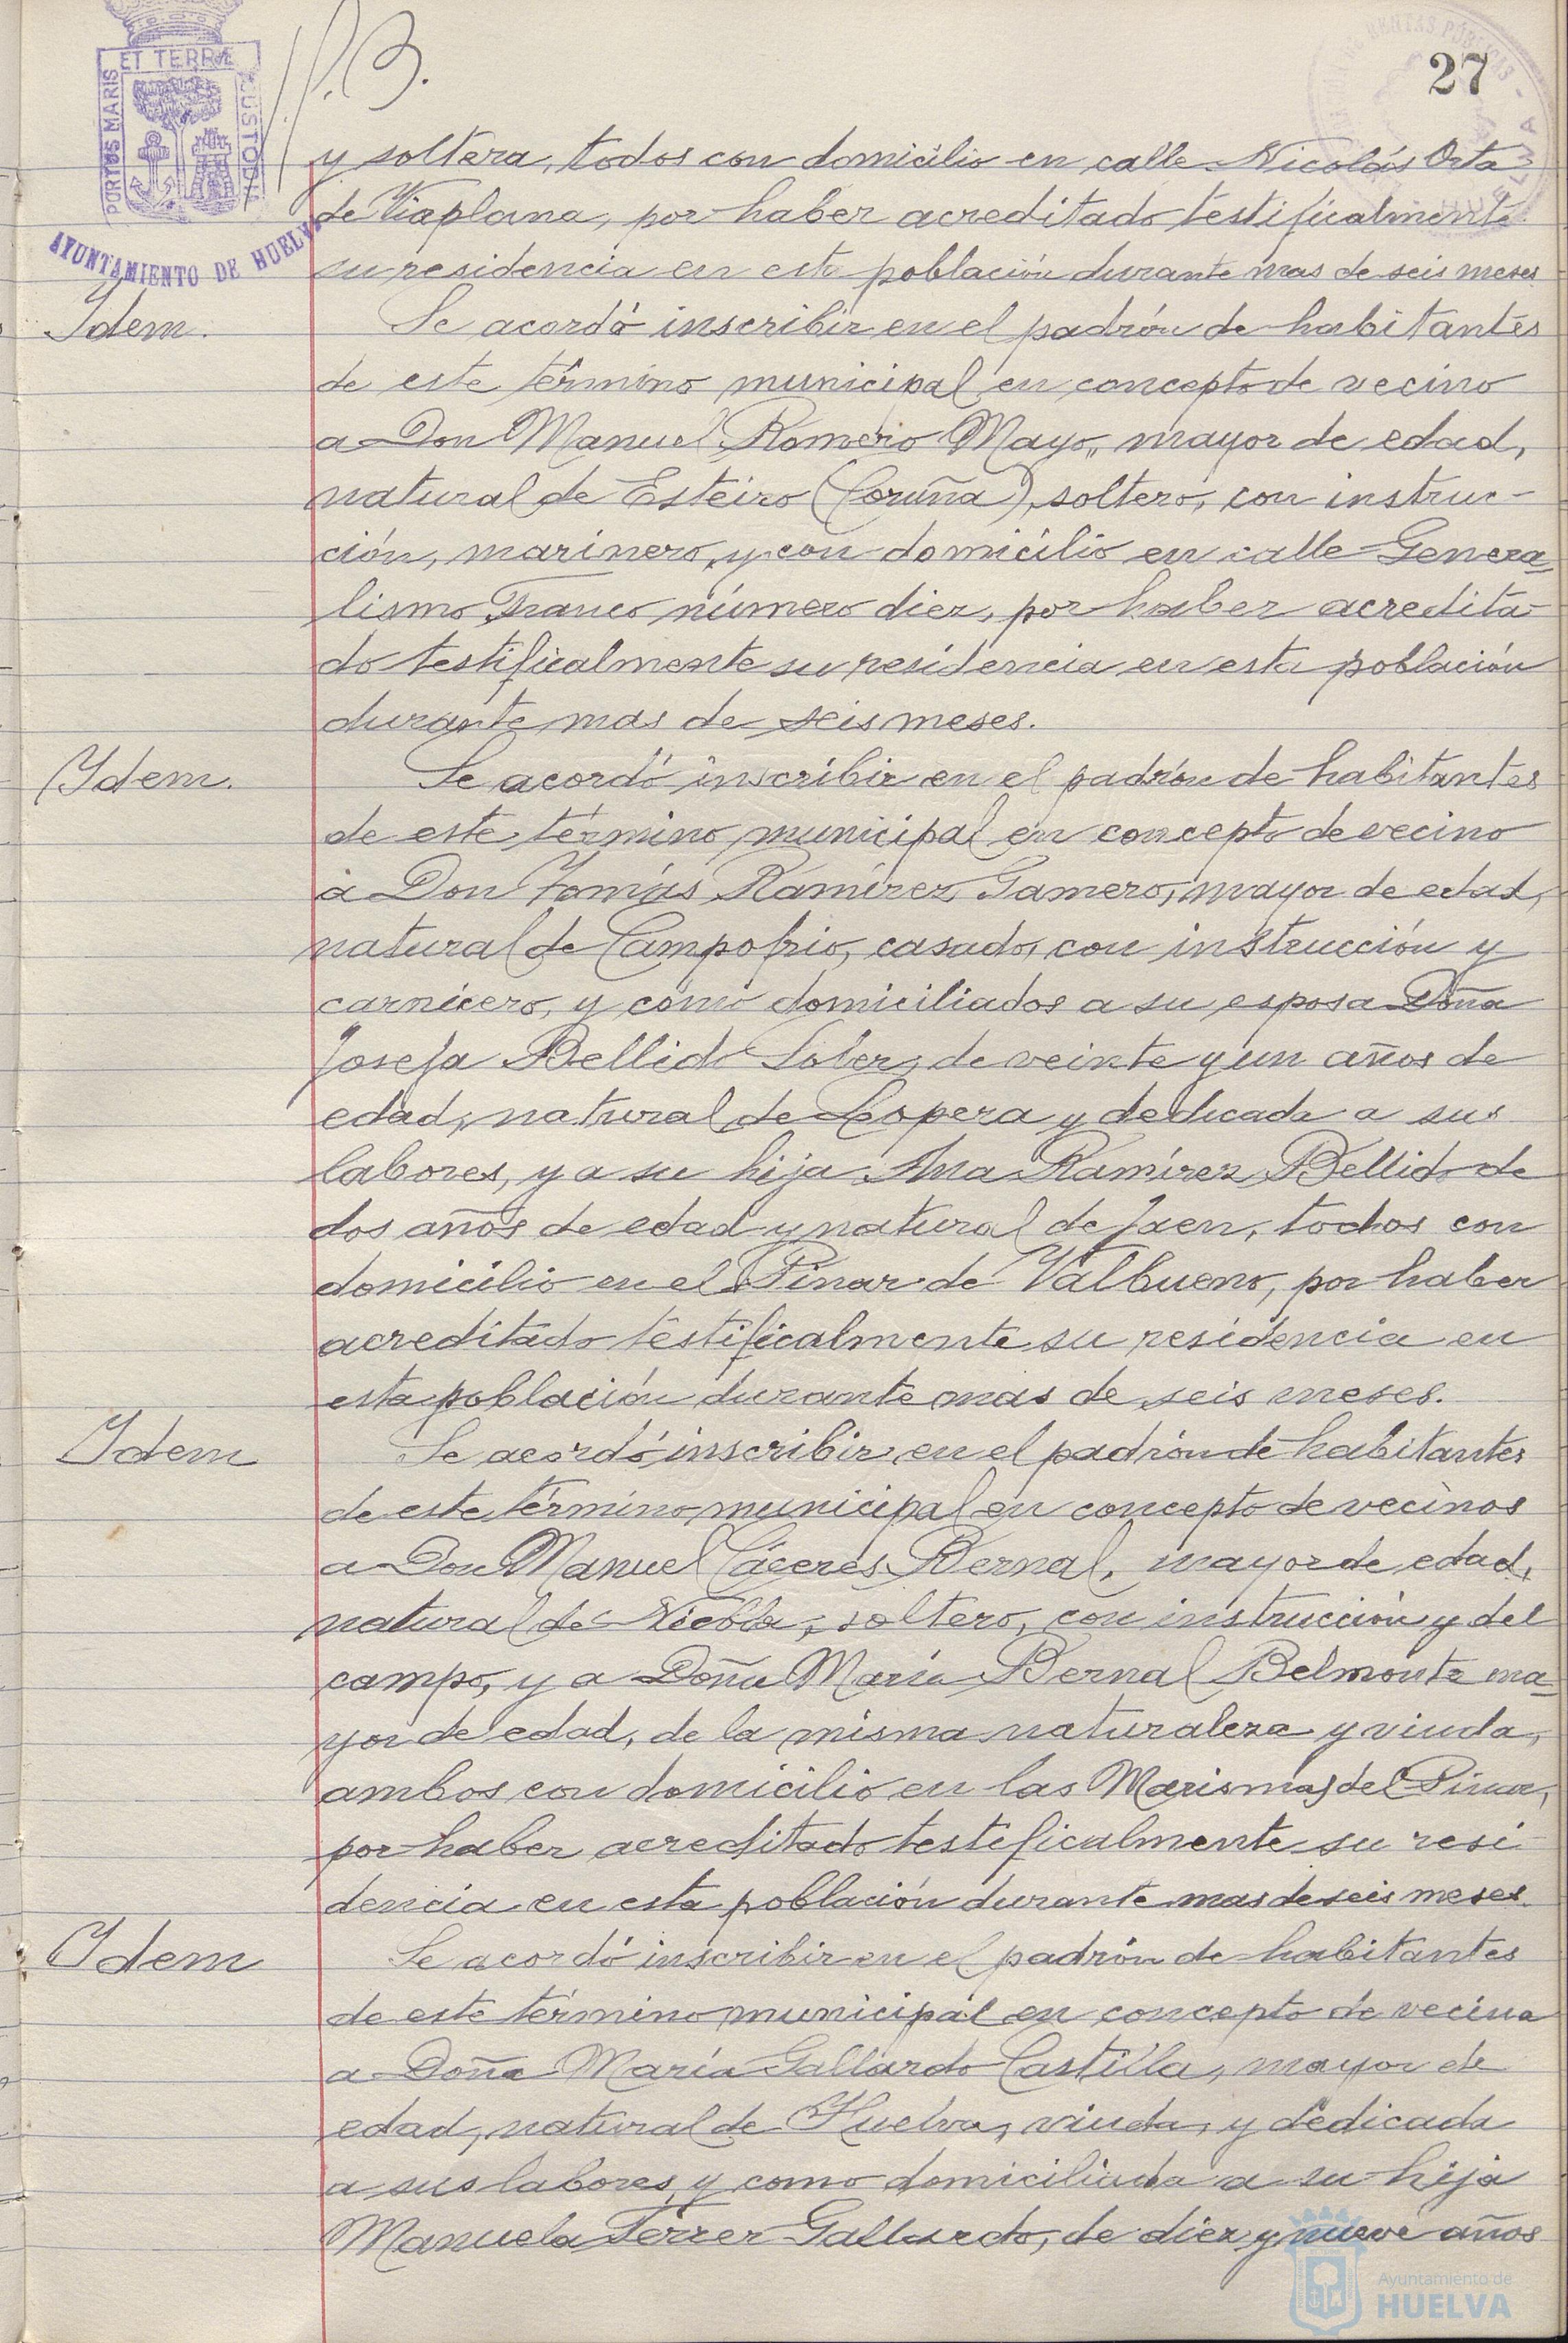 27
PORTUS MARIS ET TERRÆ CUSTODIA
AYUNTAMIENTO DE HUELVA
y soltera, todos con domicilio en calle Nicolás Orta
de Viaplana, por haber acreditado testificalmente
su residencia en esta población durante mas de seis meses
Idem.
Se acordó inscribir en el padrón de habitantes
de este término municipal en concepto de vecino
a Don Manuel Romero Mayo, mayor de edad,
natural de Esteiro (Coruña), soltero, con instruc-
ción, marinero, y con domicilio en calle Genera=
lismo Franco número diez, por haber acredita-
do testificalmente su residencia en esta población
durante mas de seis meses.
Idem.
Se acordó inscribir en el padrón de habitantes
de este término municipal en concepto de vecino
a Don Tomás Ramírez Gamero, mayor de edad,
natural de Campofrio, casado, con instrucción y
carnicero, y como domiciliados a su esposa Doña
Josefa Bellido Sober, de veinte y un años de
edad, natural de Lopera y dedicada a sus
labores, y a su hija Ana Ramírez Bellido de
dos años de edad y natural de Jaen, todos con
domicilio en el Pinar de Valbueno, por haber
acreditado testificalmente su residencia en
esta población durante mas de seis meses.
Idem
Se acordó inscribir en el padrón de habitantes
de este término municipal en concepto de vecinos
a Don Manuel Cáceres Bernal, mayor de edad,
natural de Niebla, soltero, con instrucción y del
campo, y a Doña María Bernal Belmonte ma=
yor de edad, de la misma naturaleza y viuda,
ambos con domicilio en las Marismas del Pinar,
por haber acreditado testificalmente su resi
dencia en esta población durante mas de seis meses.
Idem
Se acordó inscribir en el padrón de habitantes
de este término municipal en concepto de vecina
a Doña María Gallardo Castilla, mayor de
edad, natural de Huelva, viuda, y dedicada
a sus labores, y como domiciliada a su hija
Manuela Ferrer Gallardo, de diez y nueve años
Ayuntamiento de
HUELVA